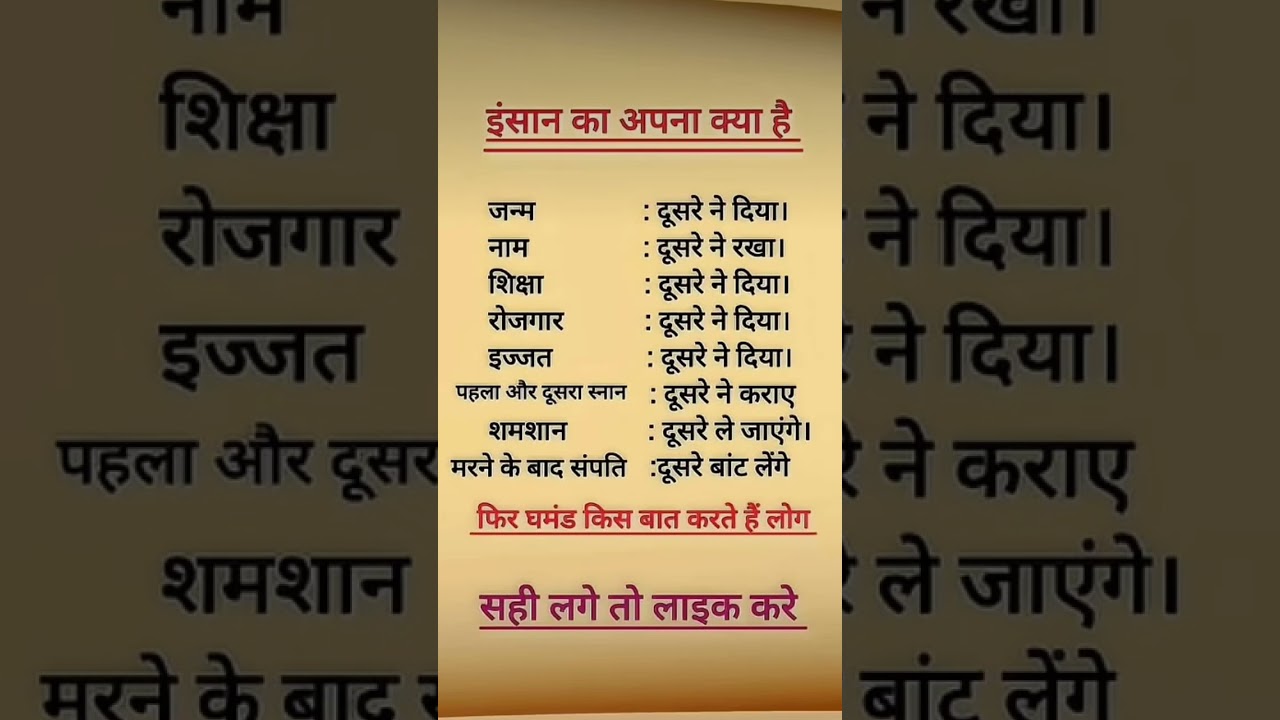 इंसान का अपना क्या है
जन्म : दूसरे ने दिया।
नाम : दूसरे ने रखा।
शिक्षा : दूसरे ने दिया।
रोजगार : दूसरे ने दिया।
इज्जत : दूसरे ने दिया।
पहला और दूसरा स्नान : दूसरे ने कराए
शमशान : दूसरे ले जाएंगे।
मरने के बाद संपति :दूसरे बांट लेंगे
फिर घमंड किस बात करते हैं लोग
सही लगे तो लाइक करे